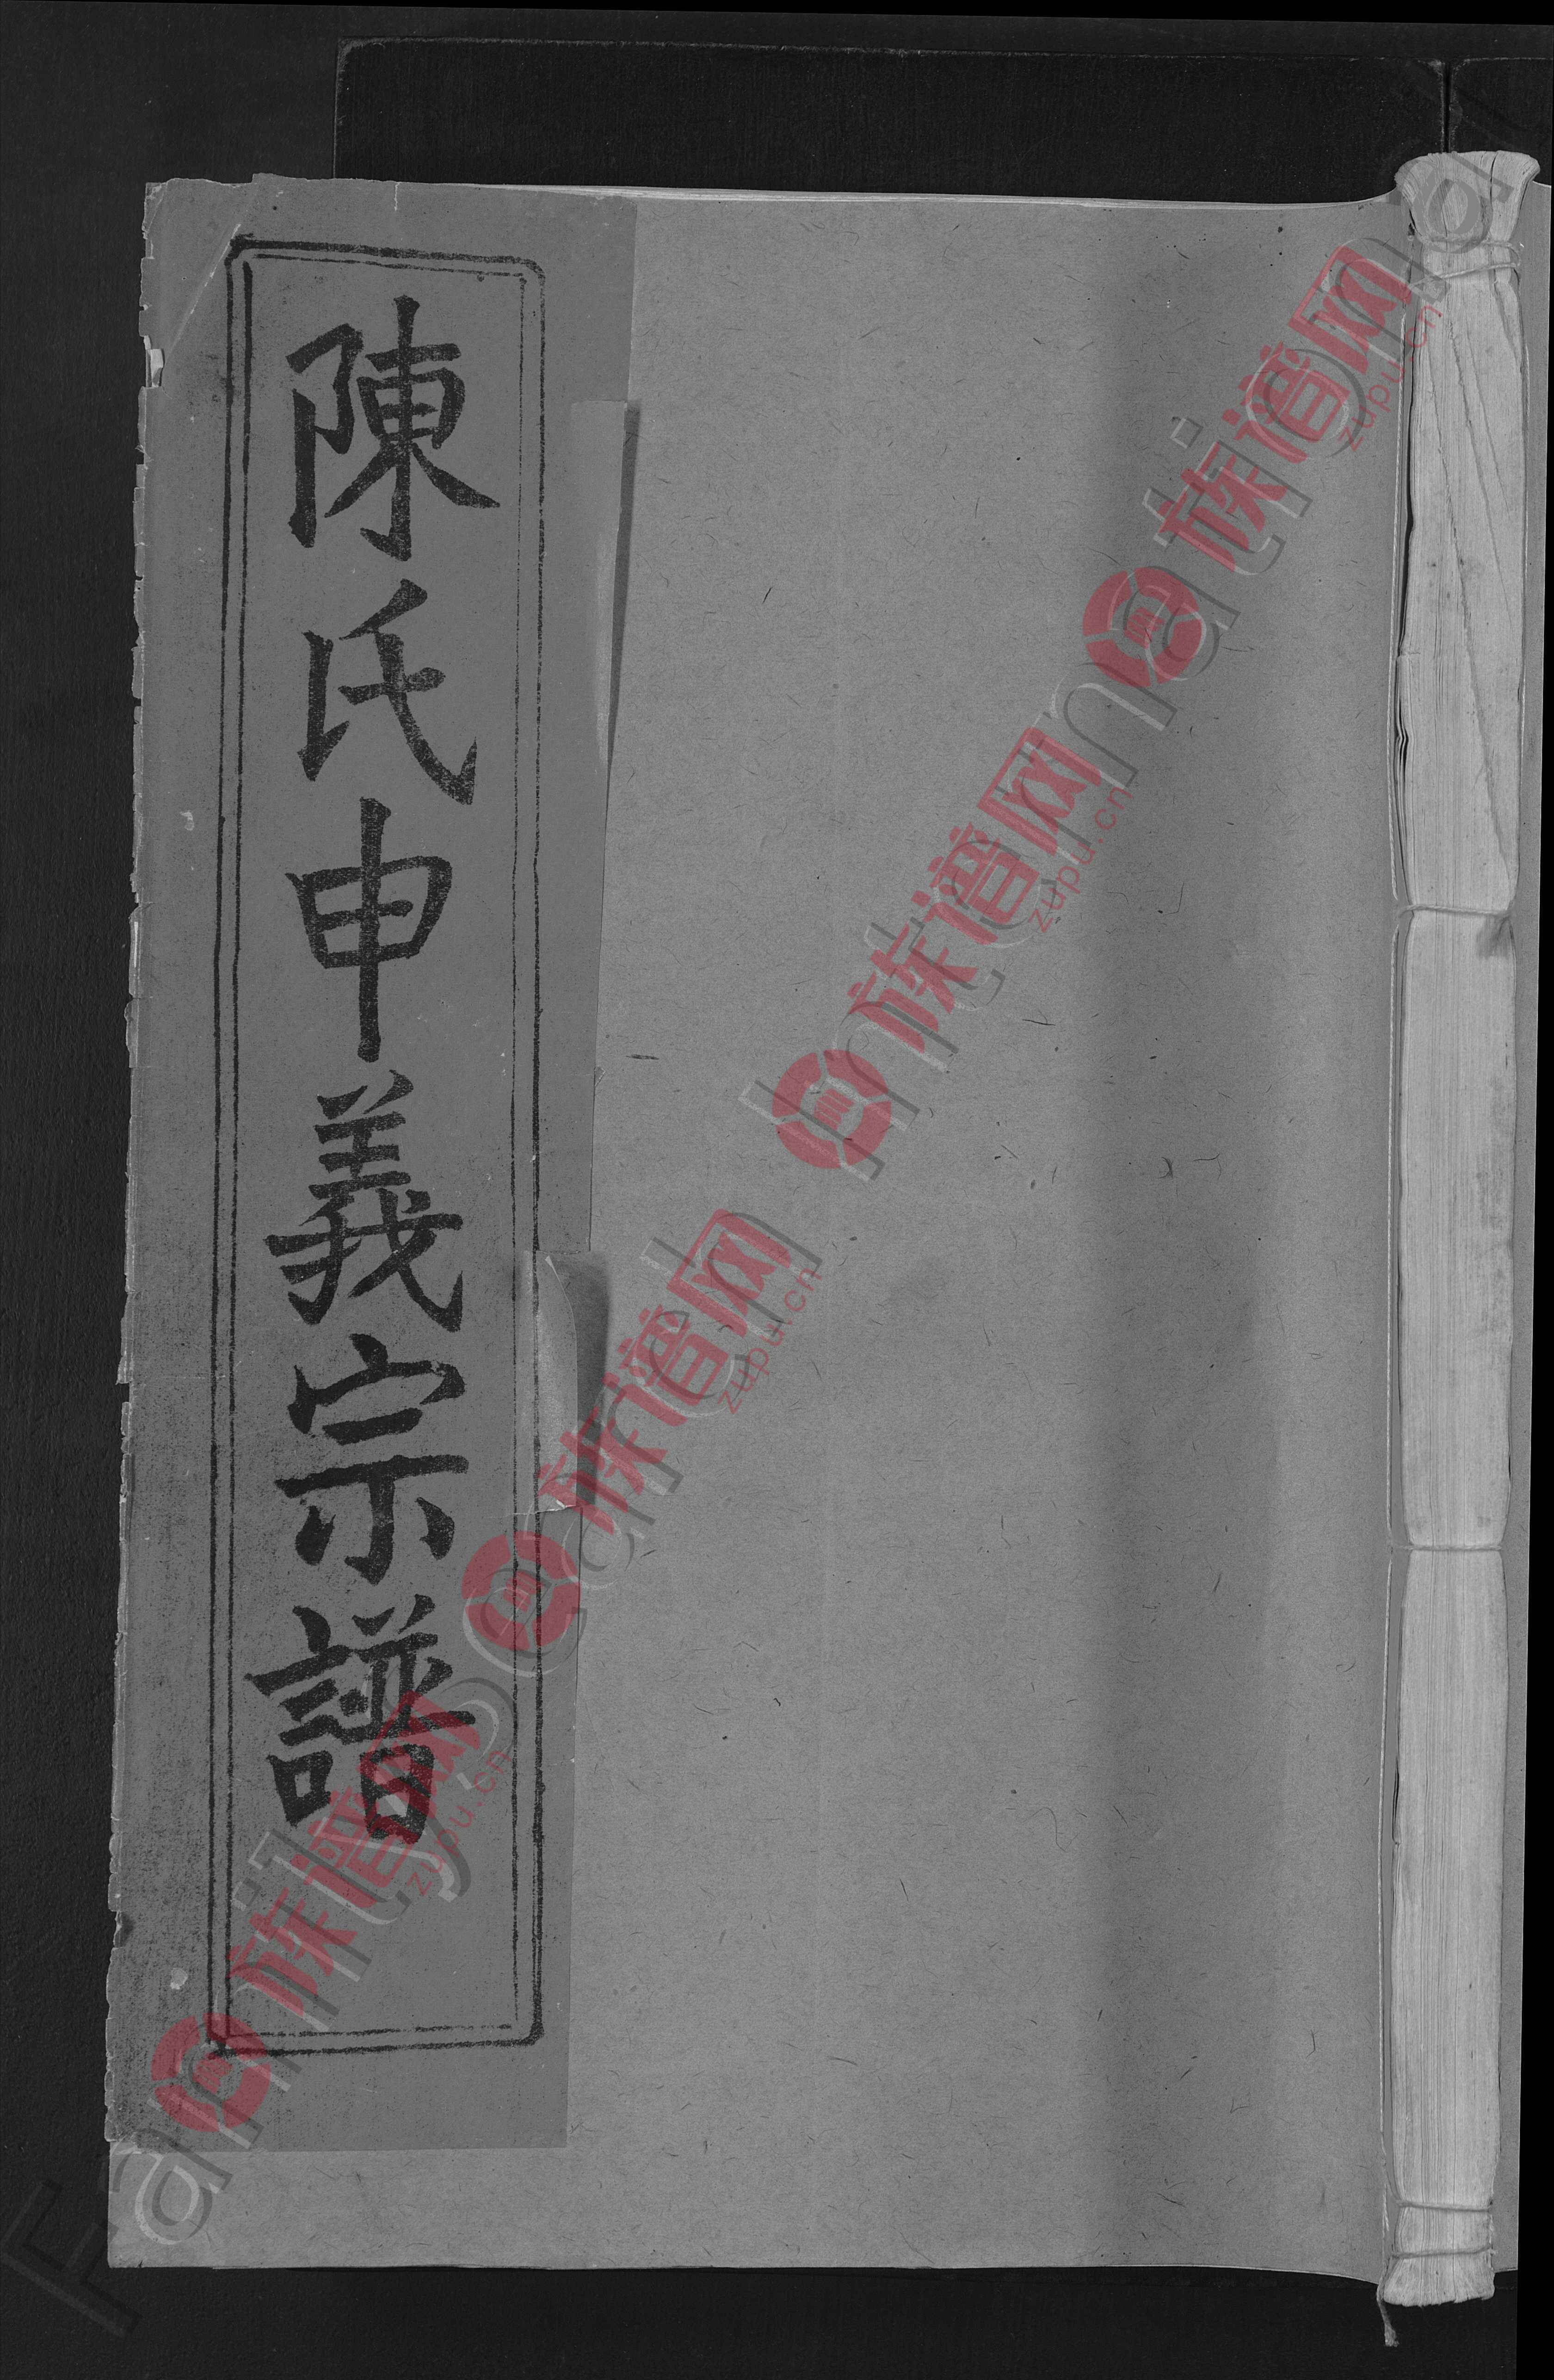 陳氏申義宗譜
族谱网
zupu.cn
族谱网
zupu.cn
族谱网
zupu.cn
族谱网
zupu.cn
FamilySearch International